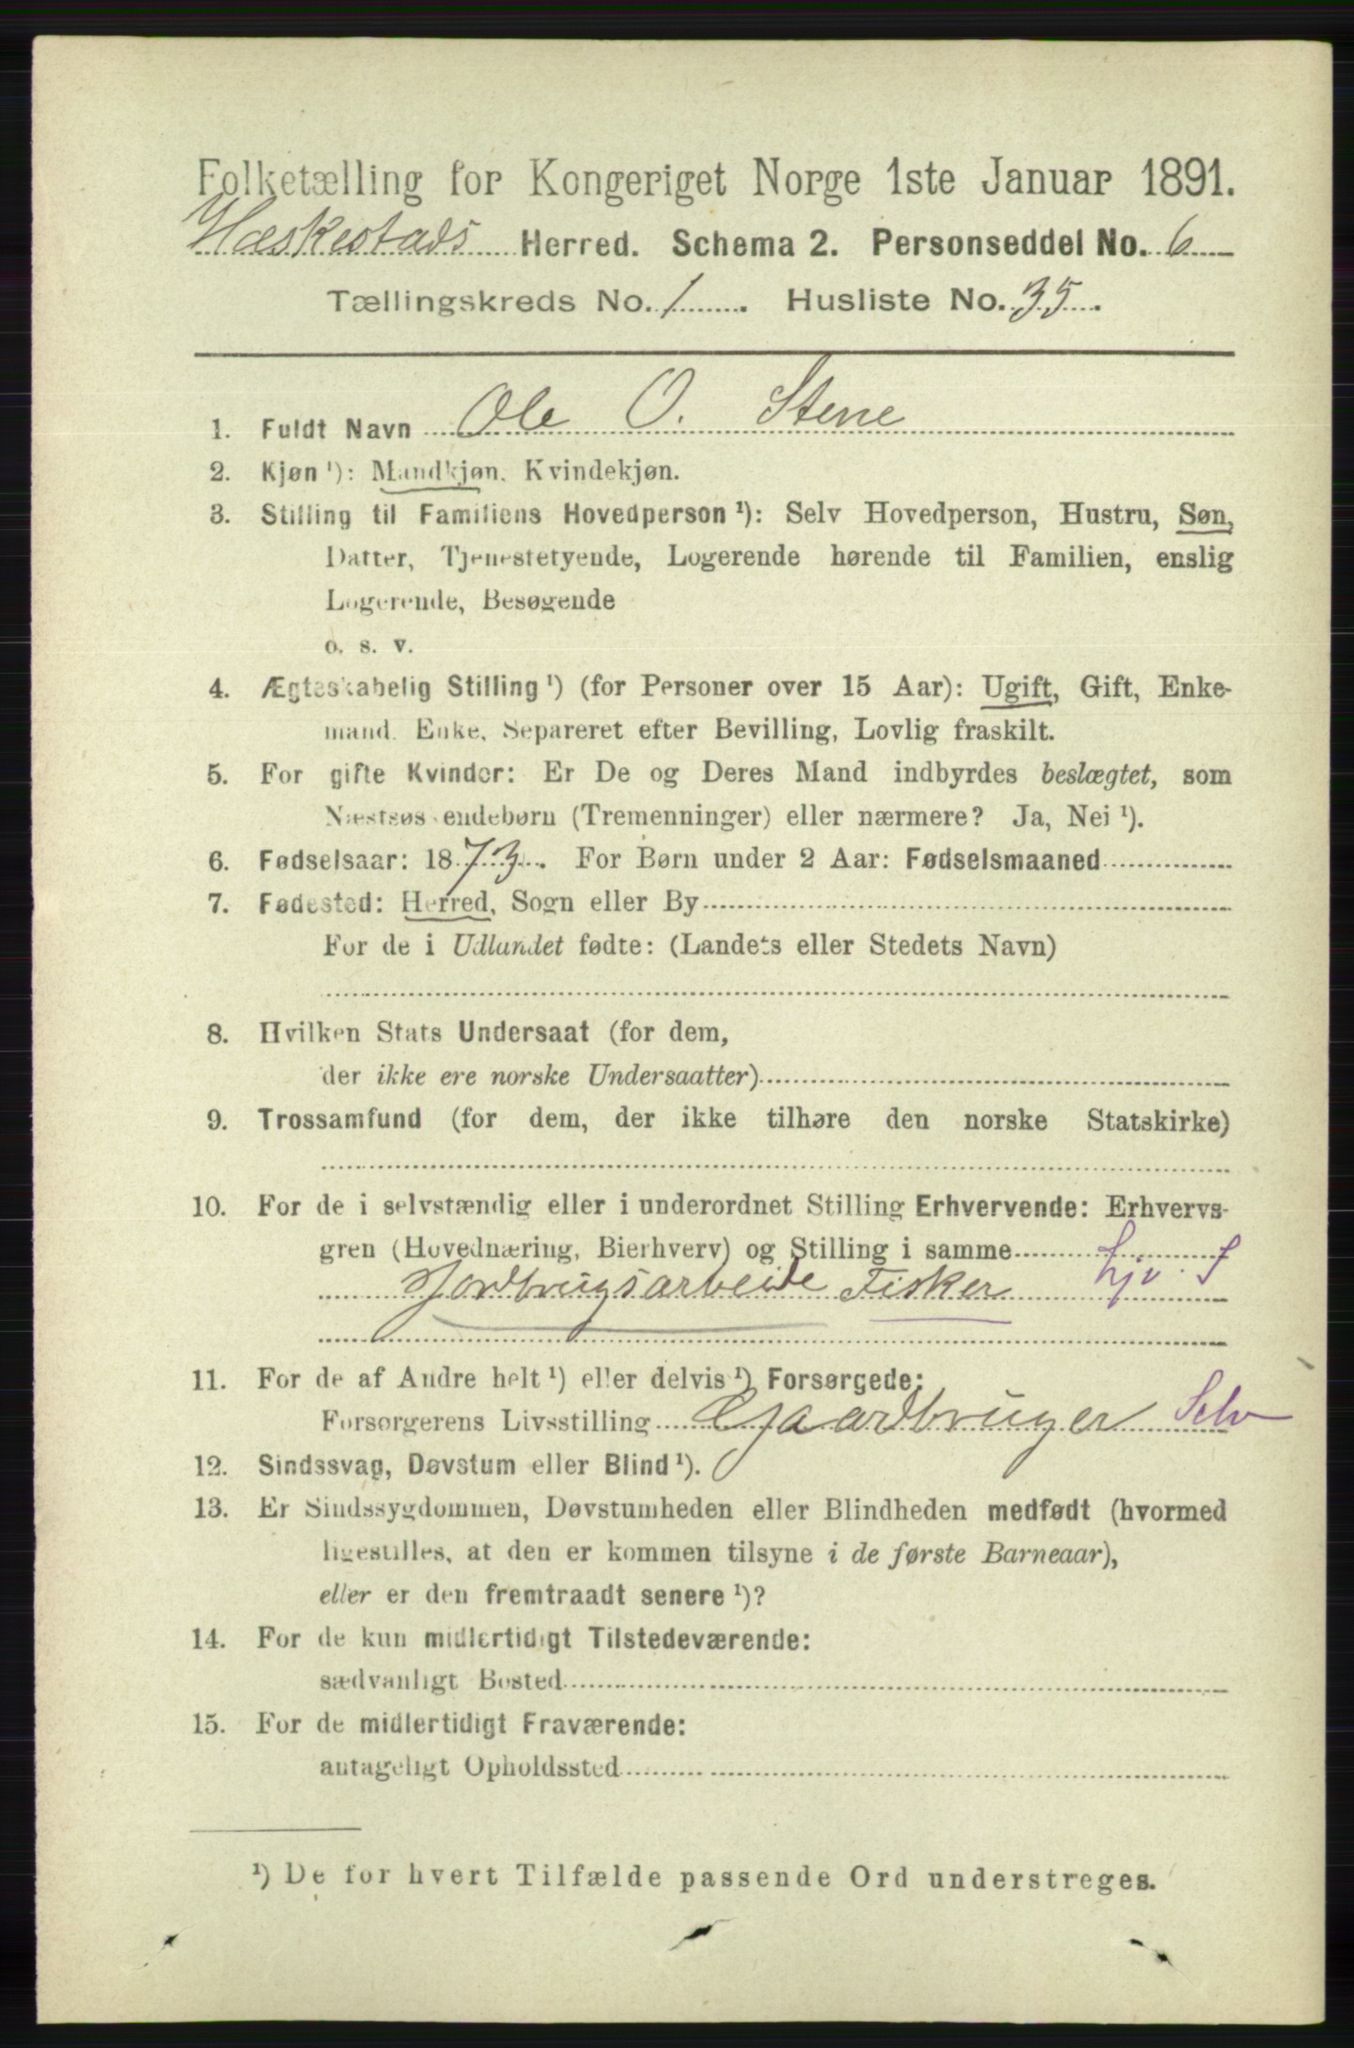 Folketælling for Kongeriget Norge 1ste Januar 1891.
Heskestads Herred. Schema 2. Personseddel No. 6
Tællingskreds No. 1. Husliste No. 35.
1. Fuldt Navn Ole O. Stene
2. Kjøn ¹): Mandkjøn. Kvindekjøn.
3. Stilling til Familiens Hovedperson ¹): Selv Hovedperson, Hustru, Søn,
Datter, Tjenestetyende, Logerende hørende til Familien, enslig
Logerende, Besøgende
o. s. v.
4. Ægteskabelig Stilling ¹) (for Personer over 15 Aar): Ugift, Gift, Enke-
mand. Enke, Separeret efter Bevilling, Lovlig fraskilt.
5. For gifte Kvinder: Er De og Deres Mand indbyrdes beslægtet, som
Næstsøskendebørn (Tremenninger) eller nærmere? Ja, Nei ¹).
6. Fødselsaar: 1873. For Børn under 2 Aar: Fødselsmaaned
7. Fødested: Herred, Sogn eller By
For de i Udlandet fødte: (Landets eller Stedets Navn)
8. Hvilken Stats Undersaat (for dem,
der ikke ere norske Undersaatter)
9. Trossamfund (for dem, der ikke tilhøre den norske Statskirke)
10. For de i selvstændig eller i underordnet Stilling Erhvervende: Erhvervs-
gren (Hovednæring, Bierhverv) og Stilling i samme
Jordbrugsarbeide Fisker
11. For de af Andre helt ¹) eller delvis ¹) Forsørgede:
Forsørgerens Livsstilling Gaardbruger Selv
12. Sindssvag, Døvstum eller Blind ¹).
13. Er Sindssygdommen, Døvstumheden eller Blindheden medfødt (hvormed
ligestilles, at den er kommen tilsyne i de første Barneaar),
eller er den fremtraadt senere ¹)?
14. For de kun midlertidigt Tilstedeværende:
sædvanligt Bosted
15. For de midlertidigt Fraværende:
antageligt Opholdssted
¹) De for hvert Tilfælde passende Ord understreges.